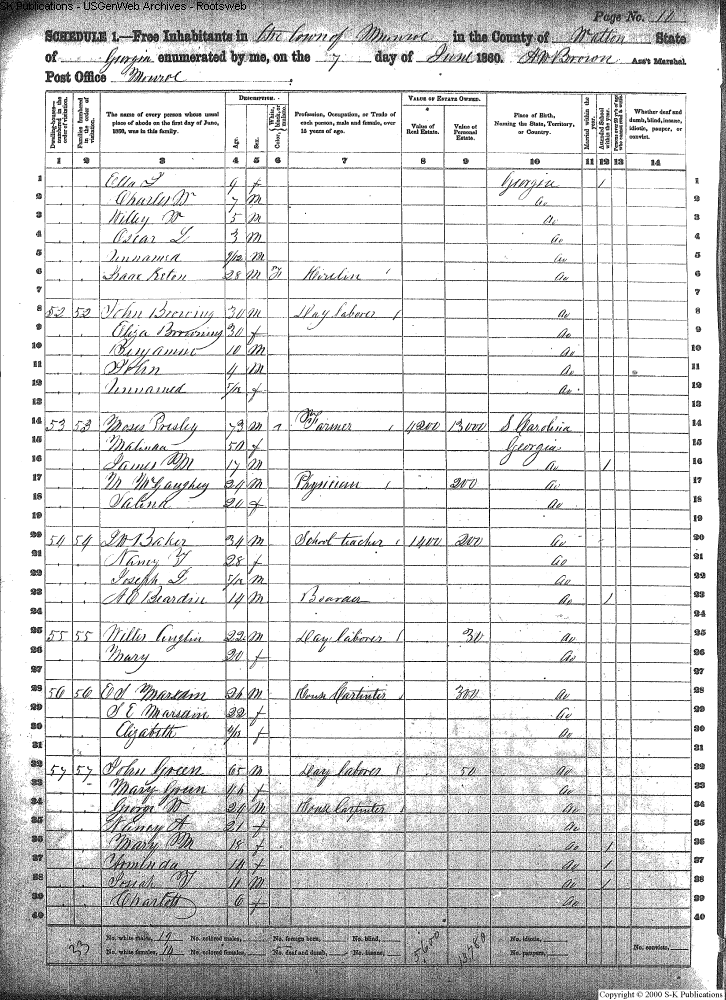 S-K Publications - USGenWeb Archives - Rootsweb
Page No. 10
SCHEDULE 1.—Free Inhabitants in the Town of Munroe in the County of Walton State
of Georgia enumerated by me, on the 7 day of June 1860. A W Brown Ass't Marshal.
Post Office Monroe
Dwelling-house—numbered in the order of visitation.
Families numbered in the order of visitation.
The name of every person whose usual place of abode on the first day of June, 1860, was in this family.
DESCRIPTION.
Age.
Sex.
Color, White, black, or mulatto.
Profession, Occupation, or Trade of each person, male and female, over 15 years of age.
VALUE OF ESTATE OWNED.
Value of Real Estate.
Value of Personal Estate.
Place of Birth, Naming the State, Territory, or Country.
Married within the year.
Attended School within the year.
Whether deaf and dumb, blind, insane, idiotic, pauper, or convict.
1 2 3 4 5 6 7 8 9 10 11 12 13 14
1 Ella L 9 f Georgia 1 1
2 Charles W 7 M Do 2
3 Wiley W 5 M Do 3
4 Oscar L 3 M Do 4
5 Unnamed /12 M Do 5
6 Isaac 28 M Do 6
7 7
8 52 52 John Browning 30 M Day laborer Do 8
9 Eliza Browning 30 f Do 9
10 Benjamin 10 M Do 10
11 John 4 M Do 11
12 Unnamed 5/12 f Do 12
13 13
14 53 53 Moses Presley 73 M Farmer 4200 13000 S Carolina 14
15 Malinda 50 f Georgia 15
16 James M 17 M Do 1 16
17 M McGaughey 24 M Physician 200 Do 17
18 Salina 20 f Do 18
19 19
20 54 54 Baker 34 M School teacher 1400 200 Do 20
21 Nancy 28 f Do 21
22 Joseph D 5/12 M Do 22
23 Beardin 14 M Boarder Do 1 23
24 24
25 55 55 Anglin 22 M Day laborer 30 Do 25
26 Mary 20 f Do 26
27 27
28 56 56 M House Carpinter 300 Do 28
29 S E 22 f Do 29
30 Elizabeth /12 f Do 30
31 31
32 57 57 John Green 65 M Day laborer 50 Do 32
33 Mary Green 46 f Do 33
34 George W 24 M House Carpinter Do 34
35 Nancy A 21 f Do 35
36 Mary M 18 f Do 1 36
37 14 f Do 1 37
38 Josiah 11 M Do 1 38
39 Charlott 6 f Do 39
40 40
33 No. white males, 19 No. colored males, No. foreign born, No. blind, 5600 13780 No. idiotic,
No. white females, No. colored females, No. deaf and dumb, No. insane, No. paupers, No. convicts,
Copyright © 2000 S-K Publications